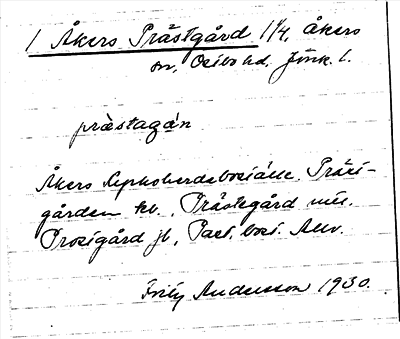 1 Åkers Prästgård 1/4, Åkers
sn, Östbo hd, Jönk. l.
prästagán
Åkers kyrkoherdeboställe. Präst-
gården kb., Prästegård mtl.
Prostgård jb, Past. bost. Allm.
Fritz Andersson 1930.